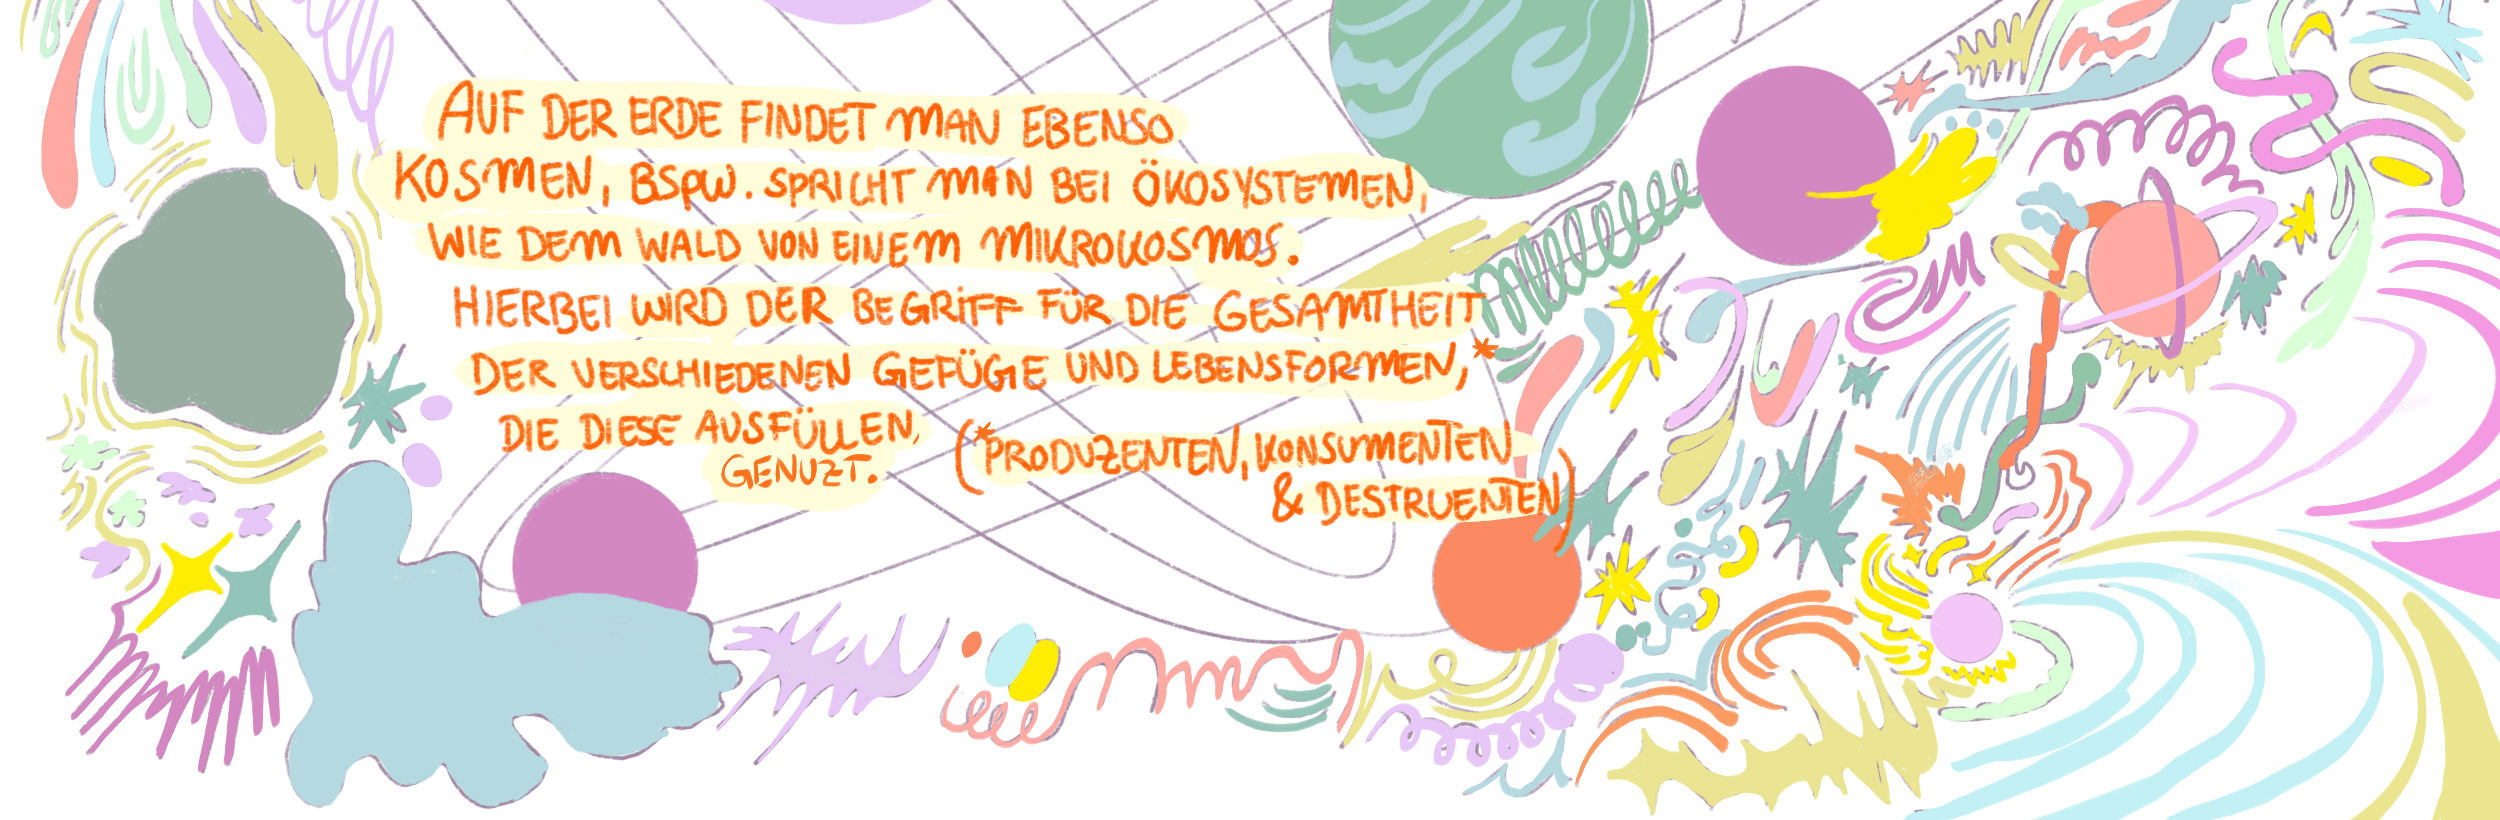 AUF DER ERDE FINDET MAN EBENSO
KOSMEN, BSPW. SPRICHT MAN BEI ÖKOSYSTEMEN,
WIE DEM WALD VON EINEM MIKROKOSMOS.
HIERBEI WIRD DER BEGRIFF FÜR DIE GESAMTHEIT
DER VERSCHIEDENEN GEFÜGE UND LEBENSFORMEN,*
DIE DIESE AUSFÜLLEN,
GENUZT.
(*PRODUZENTEN, KONSUMENTEN
& DESTRUENTEN)